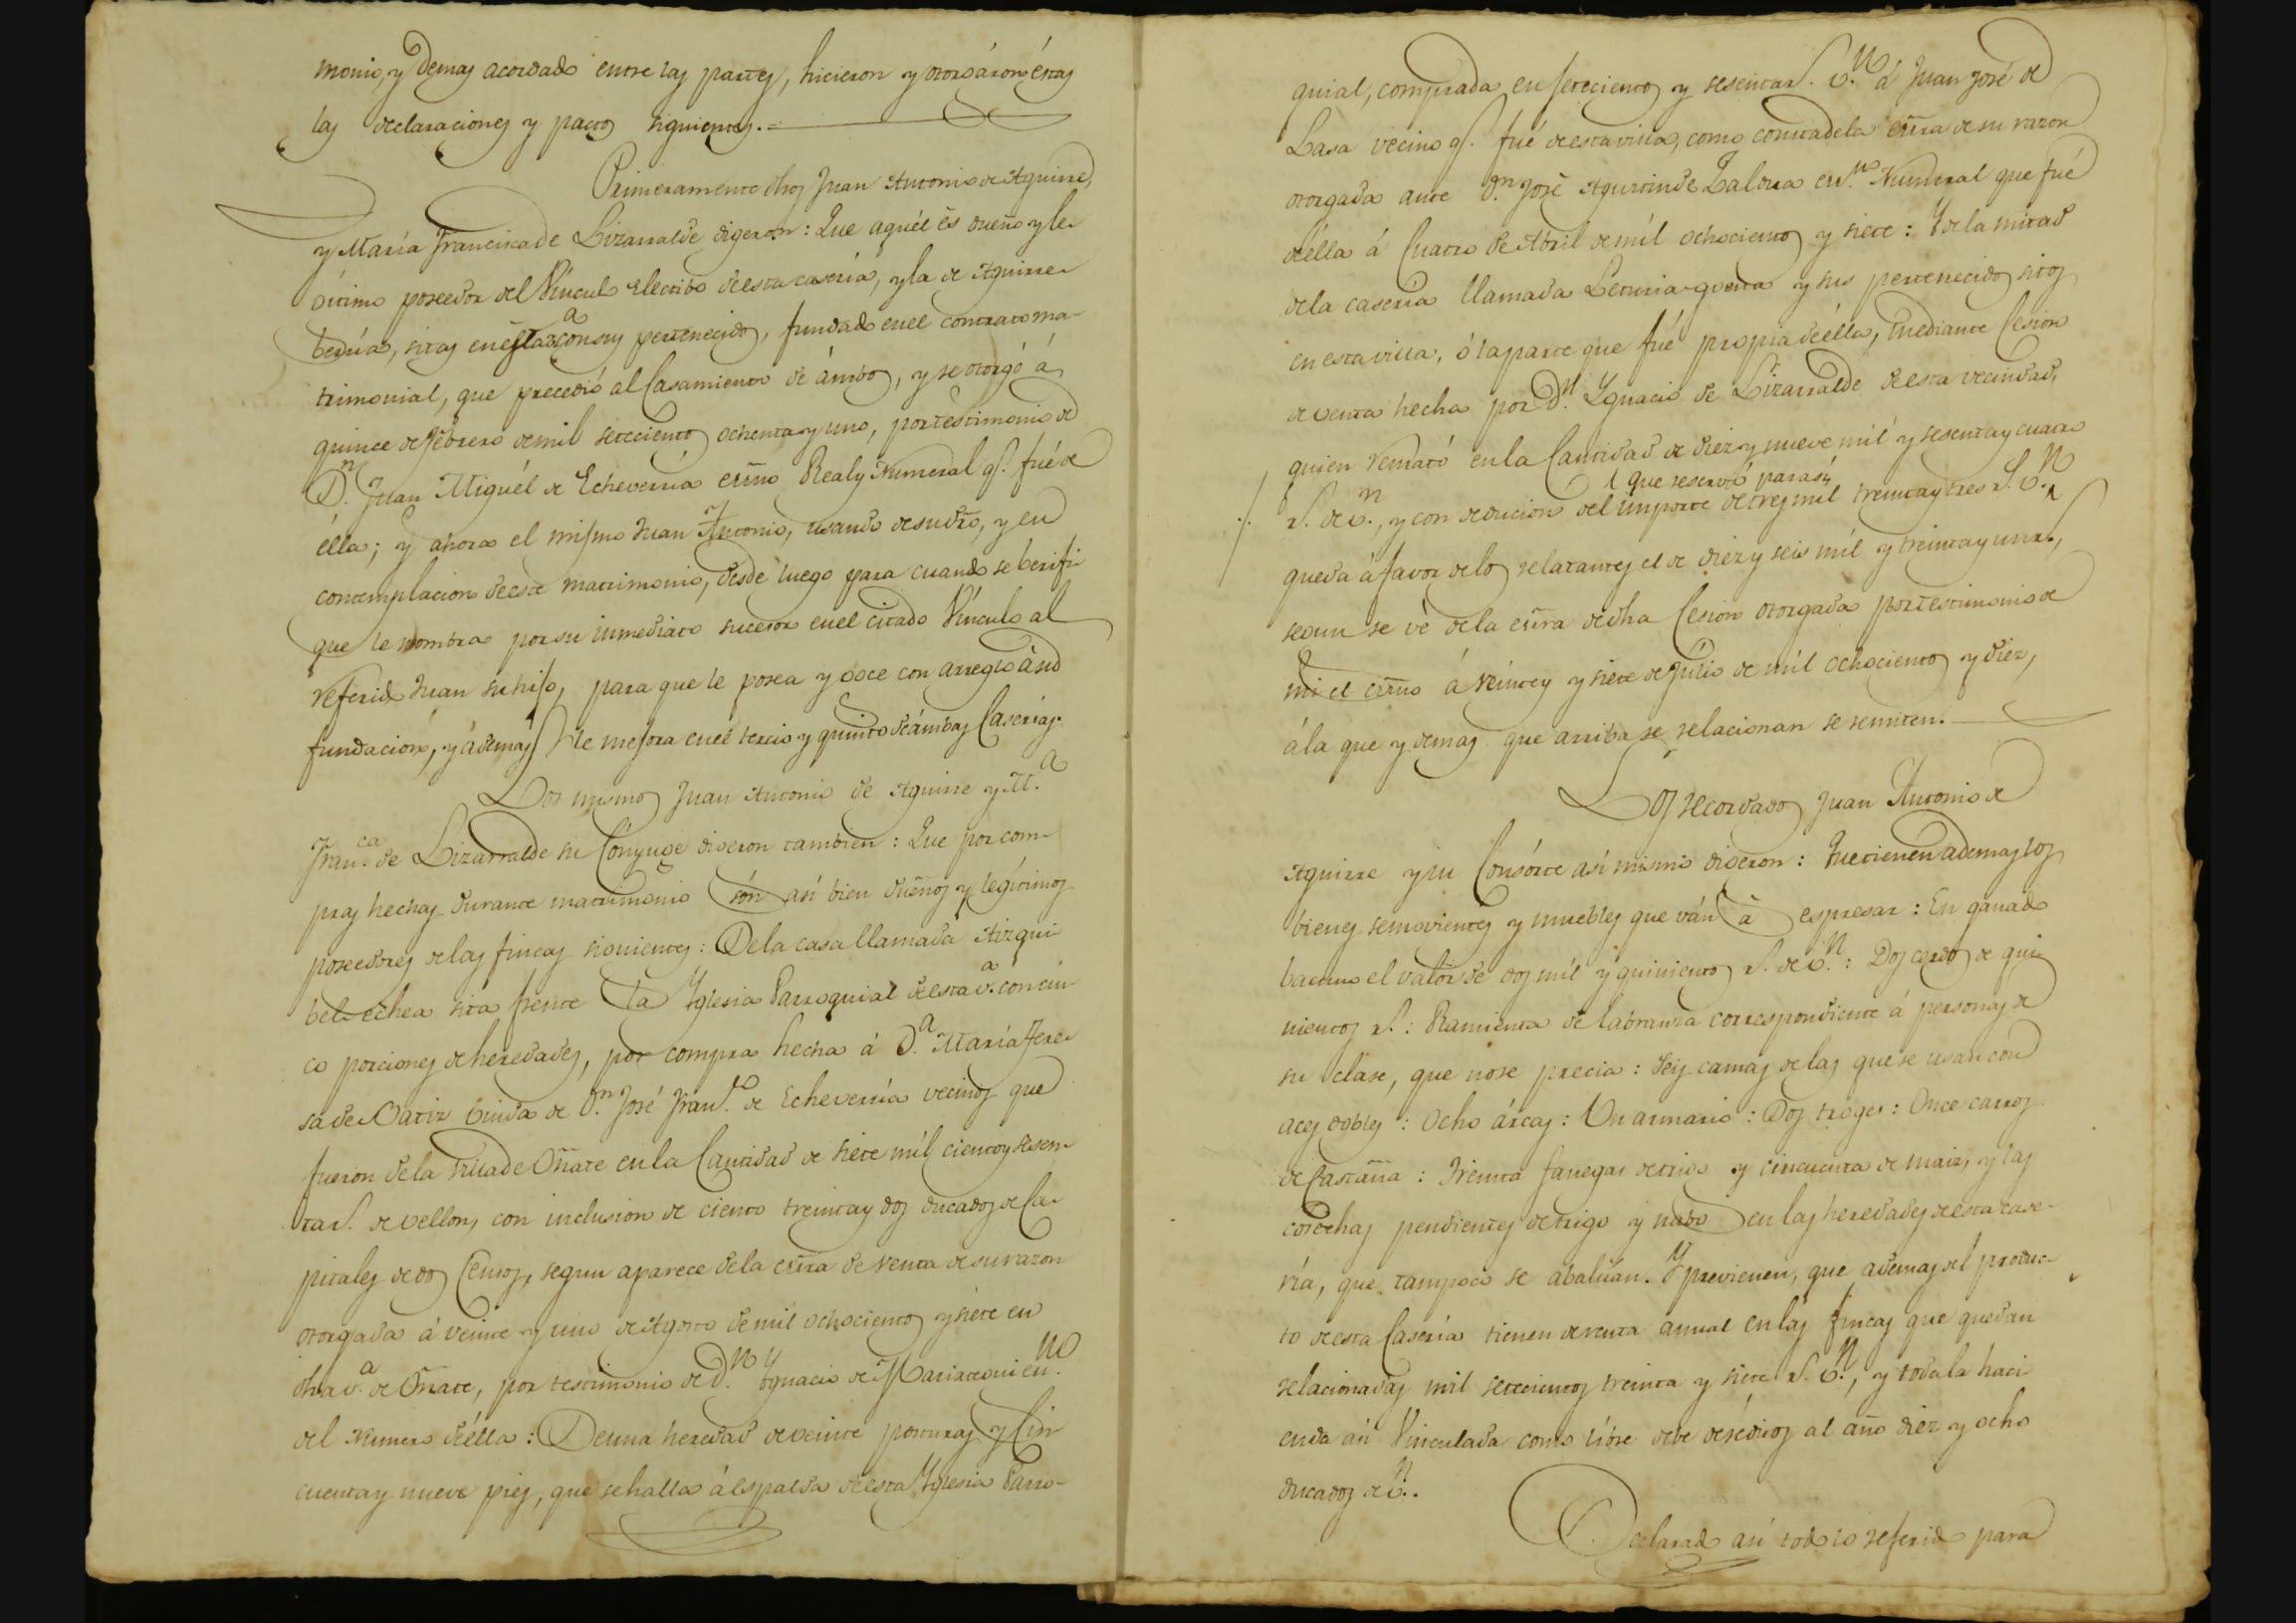 monio, y demas acordado entre las partes, hicieron y otorgáron éstas
las declaraciones y pactos siguientes.=
Primeramente dhos Juan Antonio de Aguirre,
y María Francisca de Lizarralde digeron: Que aquél és dueño y le-
gitimo poseedor del Vínculo electibo de esta casería, y la de Aguirre-
berúa, sitas en esta v.a con sus pertenecidos, fundado en el contrato ma-
trimonial, que precedió al Casamiento de ámbos, y se otorgó á
quince de Febrero de mil setecientos ochenta y uno, por testimonio de
D.n Juan Miguél de Echeverría esrño Real y Numeral q.e fué de
élla; y ahora el mismo Juan Antonio, usando de su dro, y en
contemplacion de este matrimonio, desde luego para cuando se berifi-
que le nombra por su inmediato sucesor en el citado Vínculo al
referido Juan su hijo, para que le posea y goce con arreglo á su
fundación, y además le mejora en el tercio y quinto de ámbas Caserías.
Los mismos Juan Antonio de Aguirre y M.a
Fran.ca de Lizarralde su Cónyuge digeron tambien: Que por com-
pras hechas durante matrimonio són así bien dueños y legítimos
poseedores de las fincas siguientes: De la casa llamada Aizqui-
bel-echea sita frente la Yglesia Parroquial de esta v.a con cin-
co porciones de heredades, por compra hecha á D.a María Tere-
sa de Oatiz biuda de D.n José Fran.co de Echeverría vecinos que
fueron de la Villa de Oñate en la Cantidad de siete mil ciento y sesen-
ta r.s de vellon, con inclusion de ciento treinta y dos ducados de Ca-
pitales de dos Censos, segun aparece de la esrra de venta de su razon
otorgada á veinte y uno de Agosto de mil ochocientos y siete en
dha v.a de Oñate, por testimonio de D.n Ygnacio de Mariategui en.no
del Numero de élla: De una heredad de veinte posturas y Cin-
cuenta y nueve pies, que se halla á espalda de esta Yglesia Parro-
quial, comprada en setecientos y sesenta r.s v.n á Juan José de
Lasa vecino q.e fué de esta villa, como consta de la esrra de su razon
otorgada ante D.n José Agustin de Zaloña en.no Numeral que fué
de élla á Cuatro de Abril de mil ochocientos y siete: Y de la mitad
de la casería llamada Leturia-goena y sus pertenecidos sitos
en esta villa, ó la parte que fué propia de élla, mediante Cesion
de venta hecha por D.n Ygnacio de Lizarralde de esta vecindad,
quien remató en la Cantidad de diez y nueve mil y sesenta y cuatro
que reservó para sí
r.s de v.n, y con deducion del importe de tres mil treinta y tres r.s v.n
queda á favor de los relatantes el de diez y seis mil y treinta y uno,
segun se vé de la esrra de dha Cesion otorgada por testimonio de
mi el esrño á veintey y siete de Júlio de mil ochocientos y diez,
á la que y demas que arriba se relacionan se remiten.
Los recordados Juan Antonio de
Aguirre y su Consórte asi mismo digeron: Que tienen ademas los
bienes semovientes y muebles que ván á espresar: En ganado
bacuno el valór de dos mil y quinientos r.s de v.n: Dos cerdos de qui-
nientos r.s: Ramienta de labranza correspondiente á personas de
su clase, que no se precia: Seis camas de las que se usan con
aces dobles: Ocho árcas: Un armario: Dos troges: Once carros
de Castaña: Treinta fanegas de trigo y cincuenta de maiz, y las
cosechas pendientes de trigo y nabo en las heredades de esta case-
ría, que tampoco se abalúan. Y previenen, que ademas del produc-
to de esta Casería tienen de renta anual en las fincas que quedan
relacionadas mil setecientos treinta y siete r.s v.n, y toda la haci-
enda así Vinculada como líbre debe de réditos al año diez y ocho
ducados de v.n.
Declarado así todo lo referido para